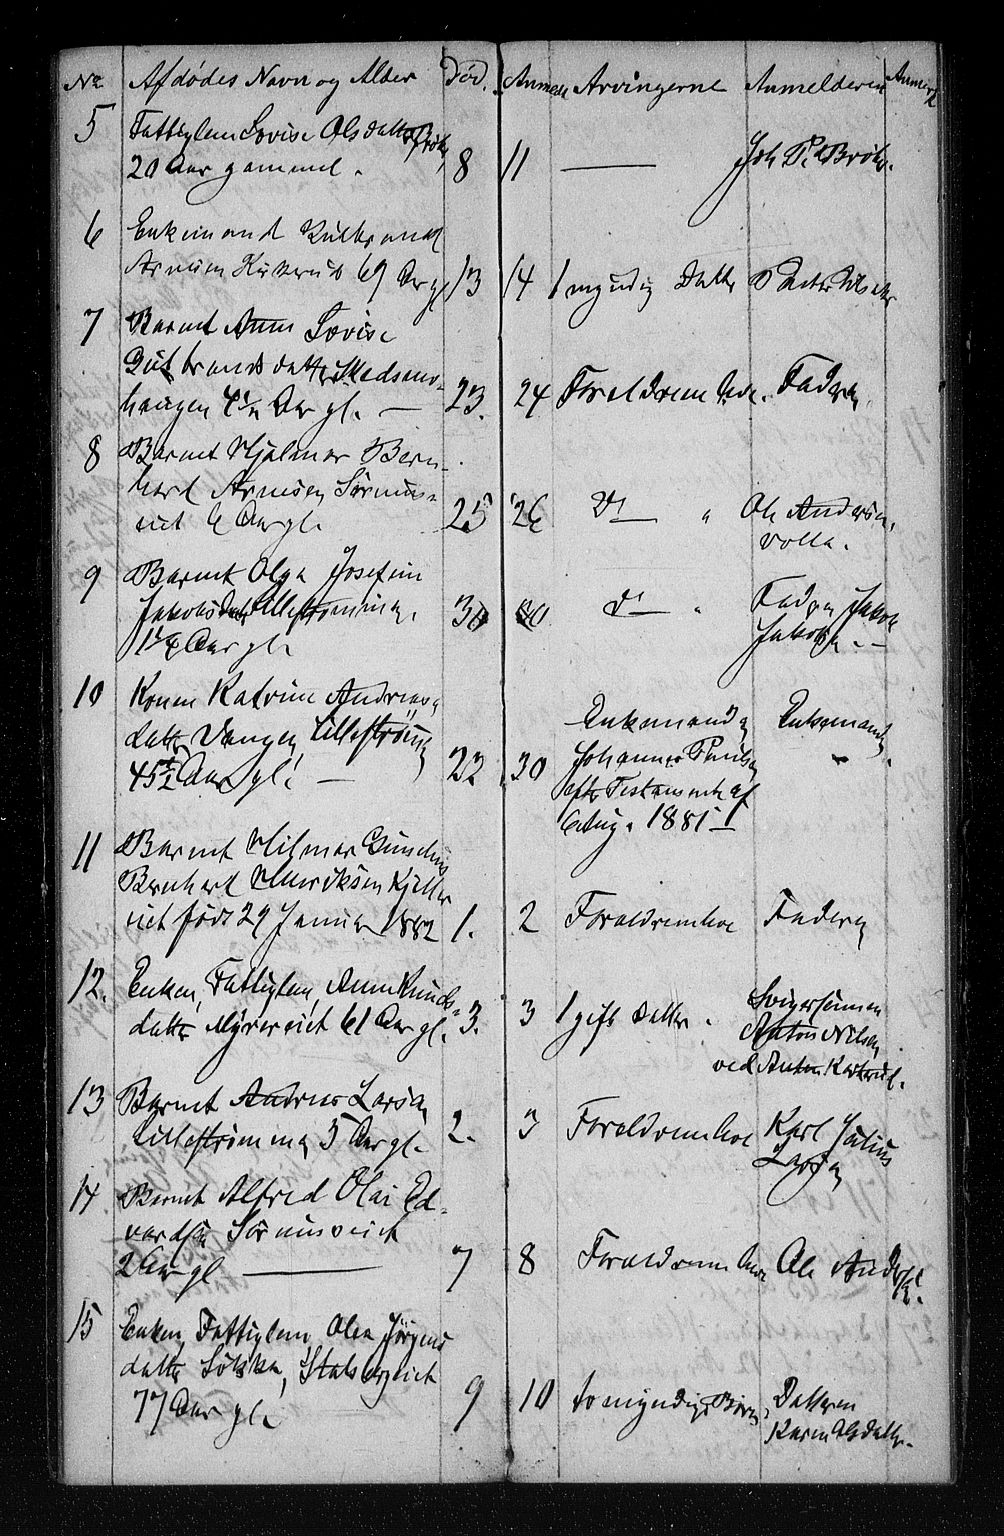 No Afdødes Navn og Alder Død. Anmeldt Arvingerne Anmelderen Anmerk
5 Fattiglem Lovise Olsdatter
20 Aar gammel. 8 11 — Joh P. Bråte.
6 Enkemand Gulbrand
Arnesen 69 Aar gl 13 14 1 myndig Datter
7 Barnet Anne Lovise
Gulbrandsdatter Skedsmo-
haugen 4 1/2 Aar gl. — 23. 24 Forældrene have. Faderen
8 Barnet Hjalmar Bern-
hard Arnesen Sørums-
eiet 6 Aar gl. 25 26 Do — " Ole Andersen
Volla.
9 Barnet Olga Josefine
Jakobsdatter Lillestrømmen. 30 30 Do — " Faderen Jakob
1 1/4 Aar gl. Jakobsen. —
10 Konen Katrine Andreas-
datter Vangen, Lillestrømmen
45 1/2 Aar gl. — 22 30 Enkemanden
Johannes Paulsen
efter Testament af
6 Aug. 1881 — Enkemanden
11 Barnet Hilmar
Bernhard Henriksen Kjeller
eiet født 29 Januar 1882 1. 2 Forældrene have Faderen
12. Enken, Fattiglem, Anne Knuds-
datter Myrereiet 61 Aar gl. 3. 3 1 gift Datter. Svigersønnen
Anton Nilsen
ved Anton
13 Barnet Andreas Larsen
Lillestrømmen 5 Aar gl. 2. 3 Forældrene have Karl Julius
Larsen
14 Barnet Alfred Olai Ed-
vardsen Sørumseiet
2 Aar gl — 7 8 Forældrene have Ole Andersen.
15 Enken, Fattiglem, Olea Jørgens
datter Løkka, Stalsbergeiet
77 Aar gl. 9 10 to myndige Børn, Datteren
Karen Olsdatter.